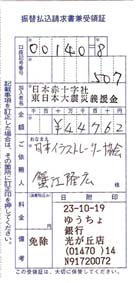 振替払込請求書兼受領証
口座記号番号
00140-8
507
加入者名
日本赤十字社
東日本大震災義援金
金額
¥44762
ご依頼人
おなまえ
日本イラストレーター協会
蟹江隆広
様
日附印
料金
免除
備考
23-10-19
ゆうちょ
銀行
光が丘店
(01470)14
N91720072
この受領証は、大切に保管してください。
記載事項を訂正した場合は、その箇所に訂正印を押してください。